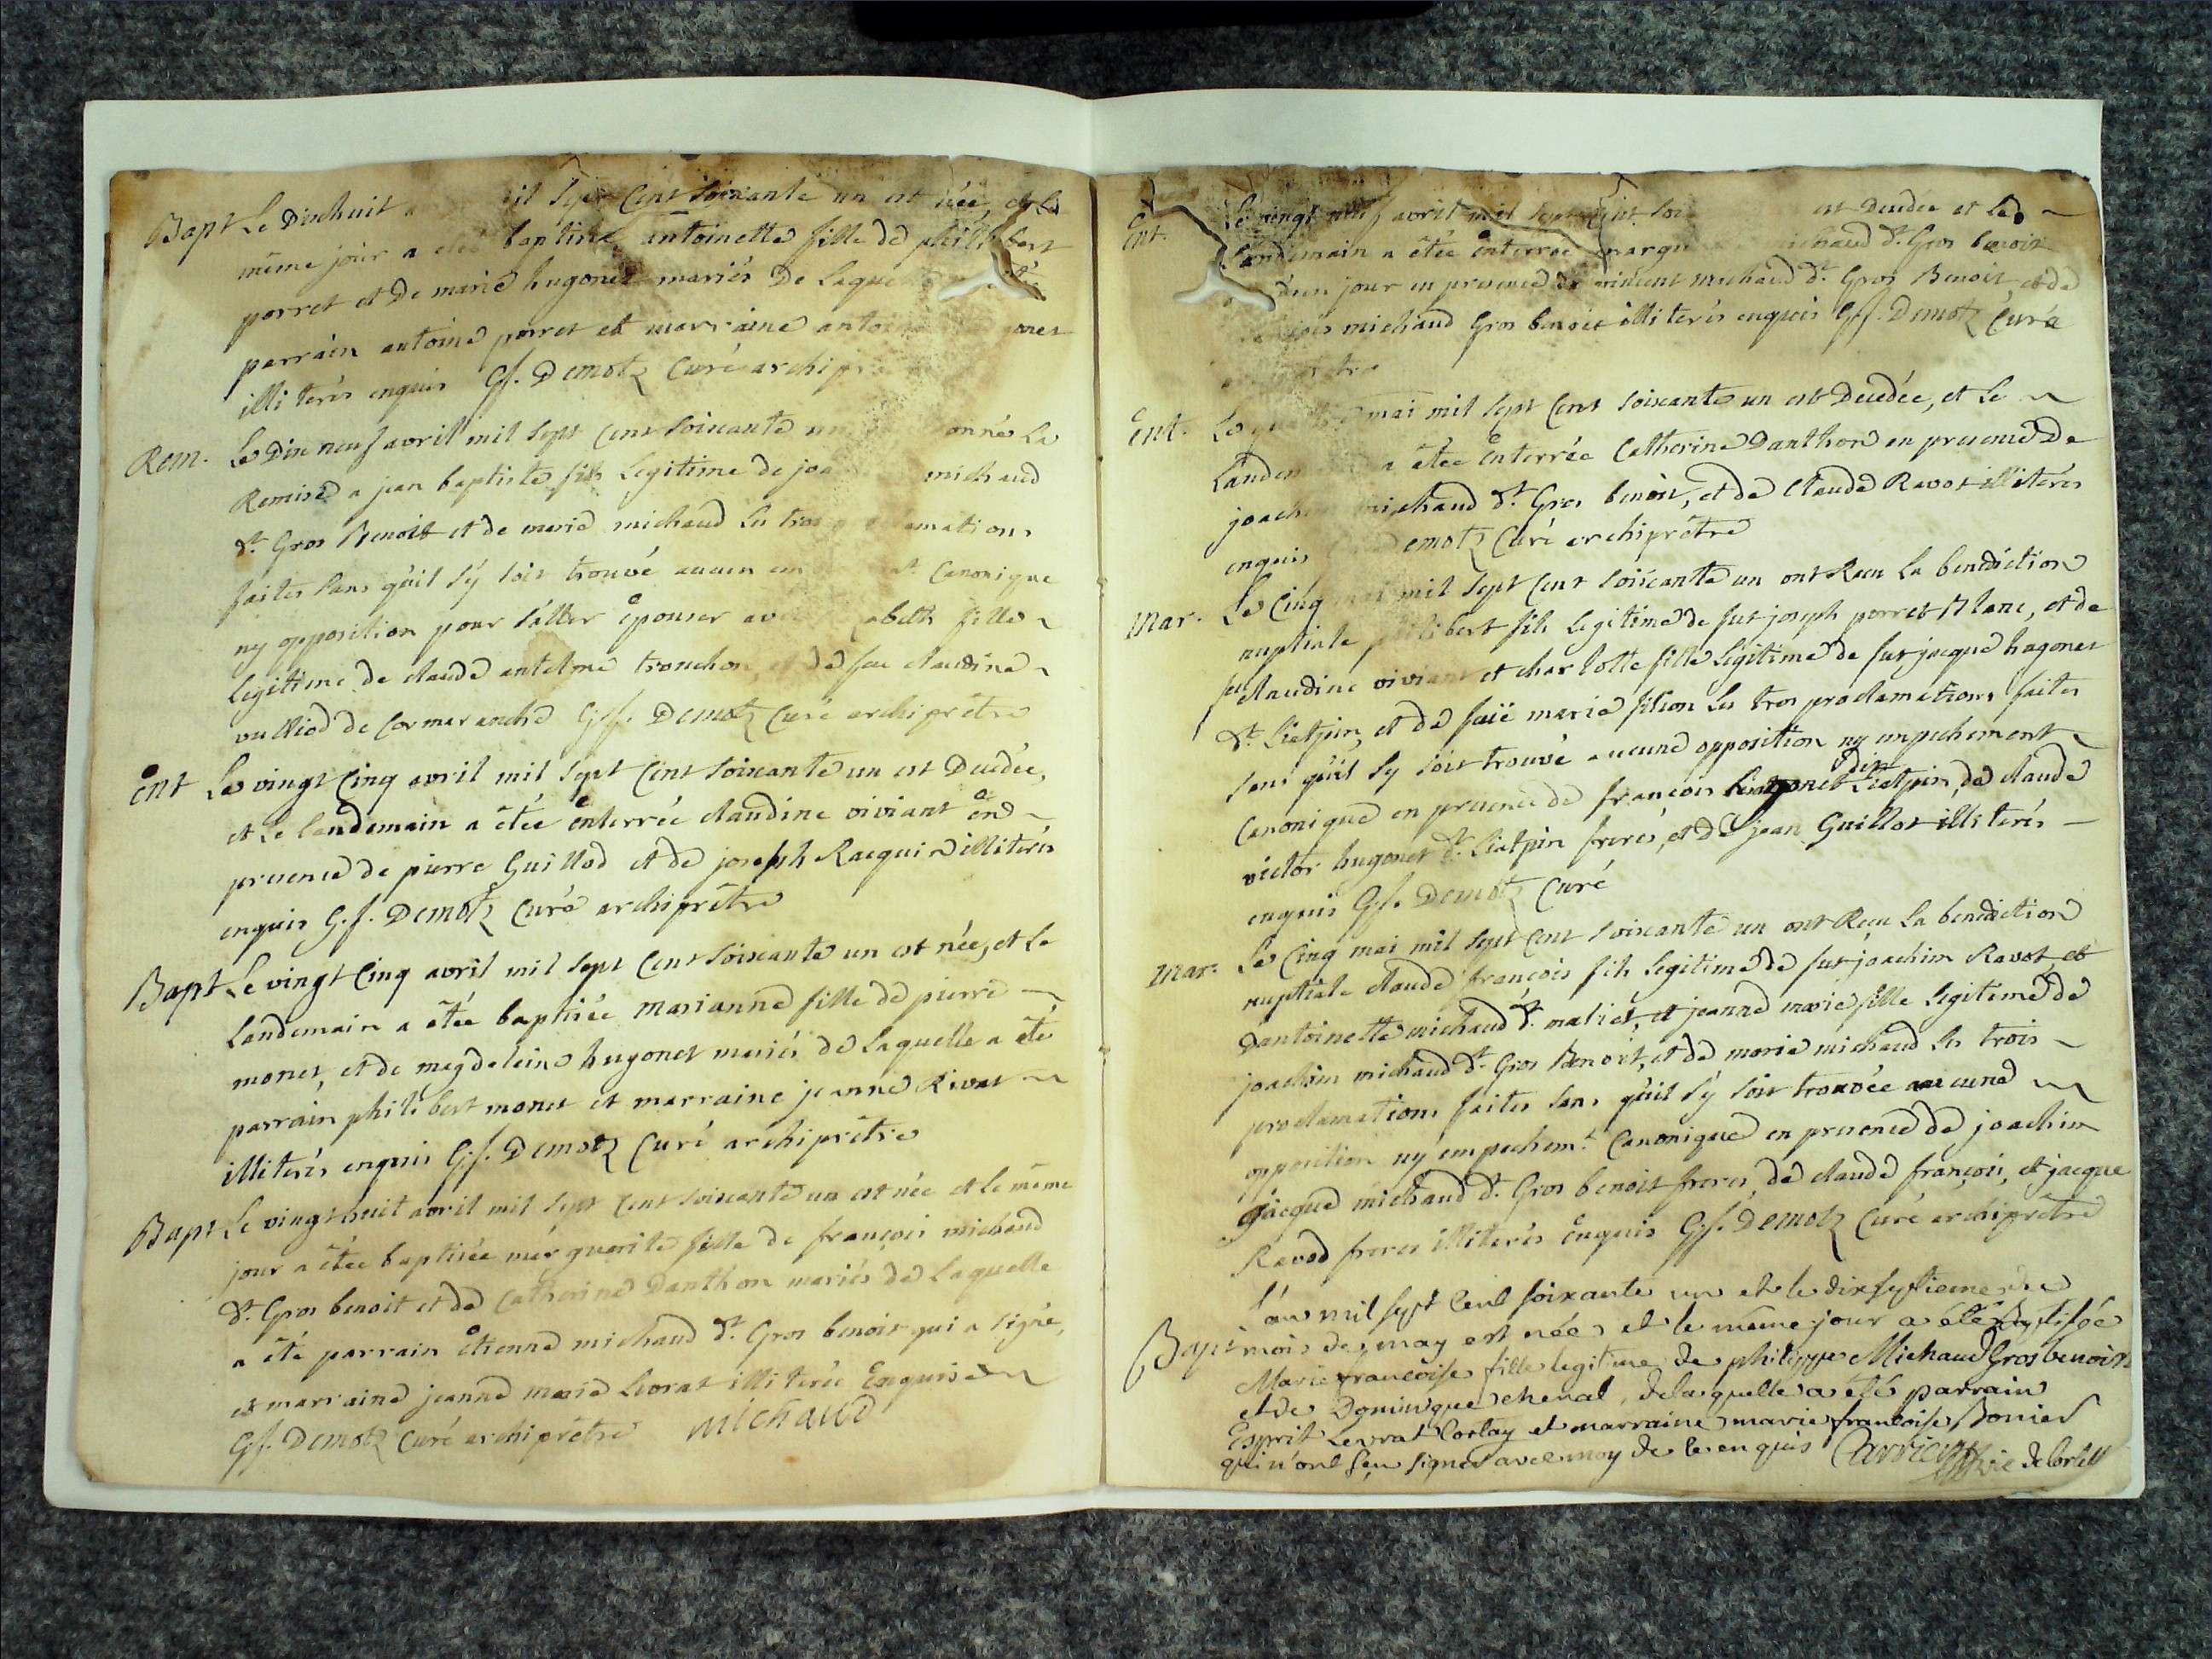 Bapt Le Dixhuit il sept Cent soixante un est née, et le
même jour a été baptisé antoinette fille de philibert
porret et De marie hugonet mariés De Laquelle
parrain antoine porret et marraine onet
illiterés enquis G.f. Demotz Curé archip
Rem. Le Dix neuf avril mil sept Cent soixante un onné La
Remise a jean baptiste fils Legitime de michaud
dt. Gros Benoit et de marie michaud les trois amations
faites sans qu'il s'y soit trouvé aucun Canonique
ny opposition pour s'aller épouser av abeth fille
Legitime de claude antelme tronchon et de feue claudine
vulliod de Cormaranche G.f. Demotz Curé archiprêtre
Ent Le vingt Cinq avril mil sept Cent soixante un est Decedée,
et Le landemain a étée enterrée claudine viviant en
presence de pierre Guillod et de joseph Racquin illiterés
enquis G.f. Demotz Curé archiprêtre
Bapt Le vingt Cinq avril mil sept Cent soixante un est née, et Le
Landemain a étée baptisée marianne fille de pierre
monet, et de magdeleine hugonet mariés de Laquelle a été
parrain philibert monet et marraine jeanne Rivat
illiterés enquis G.f. Demotz Curé archiprêtre
Bapt Le vingt huit avril mil sept Cent soixante un est née et Le même
jour a étée baptisée marguerite fille de françois michaud
dt. Gros benoit et de Catherine Danthon mariés de Laquelle
a été parrain étienne michaud dt. Gros benoit qui a signé,
et marraine jeanne marie Levrat illiterée Enquise
G.f. Demotz Curé archiprêtre michaud
Ent. Le vingt neuf avril mil sept Cent soi est Decedée et Le
Landemain a étée enterrée margu michaud dt. Gros benoit
d'un jour en presence de vincent michaud dt. Gros Benoit, et de
michaud Gros benoit illiterés enquis G.f. Demotz Curé
Ent. Le mai mil sept Cent soixante un est Decedée, et Le
Landem a étée enterrée Catherine Danthon en presence De
joachim michaud dt. Gros benoit, et de Claude Ravot illiterés
enquis Demotz Curé archiprêtre
Mar. Le Cinq mai mil sept Cent soixante un ont Recu La benediction
nuptiale philibert fils Legitime de fut joseph porret Blanc, et de
feu claudine viviant et charlotte fille Legitime de fut jacque hugonet
dt. Liatpin, et de feüe marie filion Les trois proclamations faites
sans qu'il s'y soit trouvé aucune opposition ny empechement
Canonique en presence de françois hugonet dit Liatpin, de claude
victor hugonet dt. Liatpin freres, et de jean Guillot illiterés
enquis G.f. Demotz Curé
Mar. Le Cinq mai mil sept Cent soixante un ont Reçu La benediction
nuptiale claude françois fils Legitime de fut joachim Ravot et
Dantoinette michaud dt. et jeanne marie fille Legitime de
joachim michaud dt. Gros Benoit, et de marie michaud Les trois
proclamations faites sans qu'il s'y soit trouvée aucune
opposition ny empechemt. Canonique en presence de joachim
jacque michaud dt. Gros benoit freres, de claude françois, et jacque
Ravod freres illiterés Enquis G.f. Demotz Curé archiprêtre
l'an mil sept cent soixante un et le dixseptieme de
Bapt mois de may est née et le même jour a été Baptisée
Marie francoise fille legitime de philippe Michaud Gros benoit
et de Dominique chenal, de laquelle a été parrain
Esprit Levrat Cortay et marraine marie francoise Bonier
qui n'ont sçu signer avec moy de ce enquis